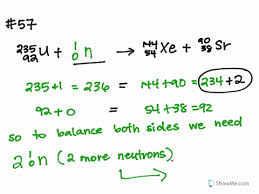 #57
²³⁵₉₂U + ¹₀n → ¹⁴⁴₅₄Xe + ⁹⁰₃₈Sr
235+1 = 236 = 144+90 = 234+2
92+0 = 54+38 = 92
so to balance both sides we need
2 ¹₀n (2 more neutrons).
ShowMe.com